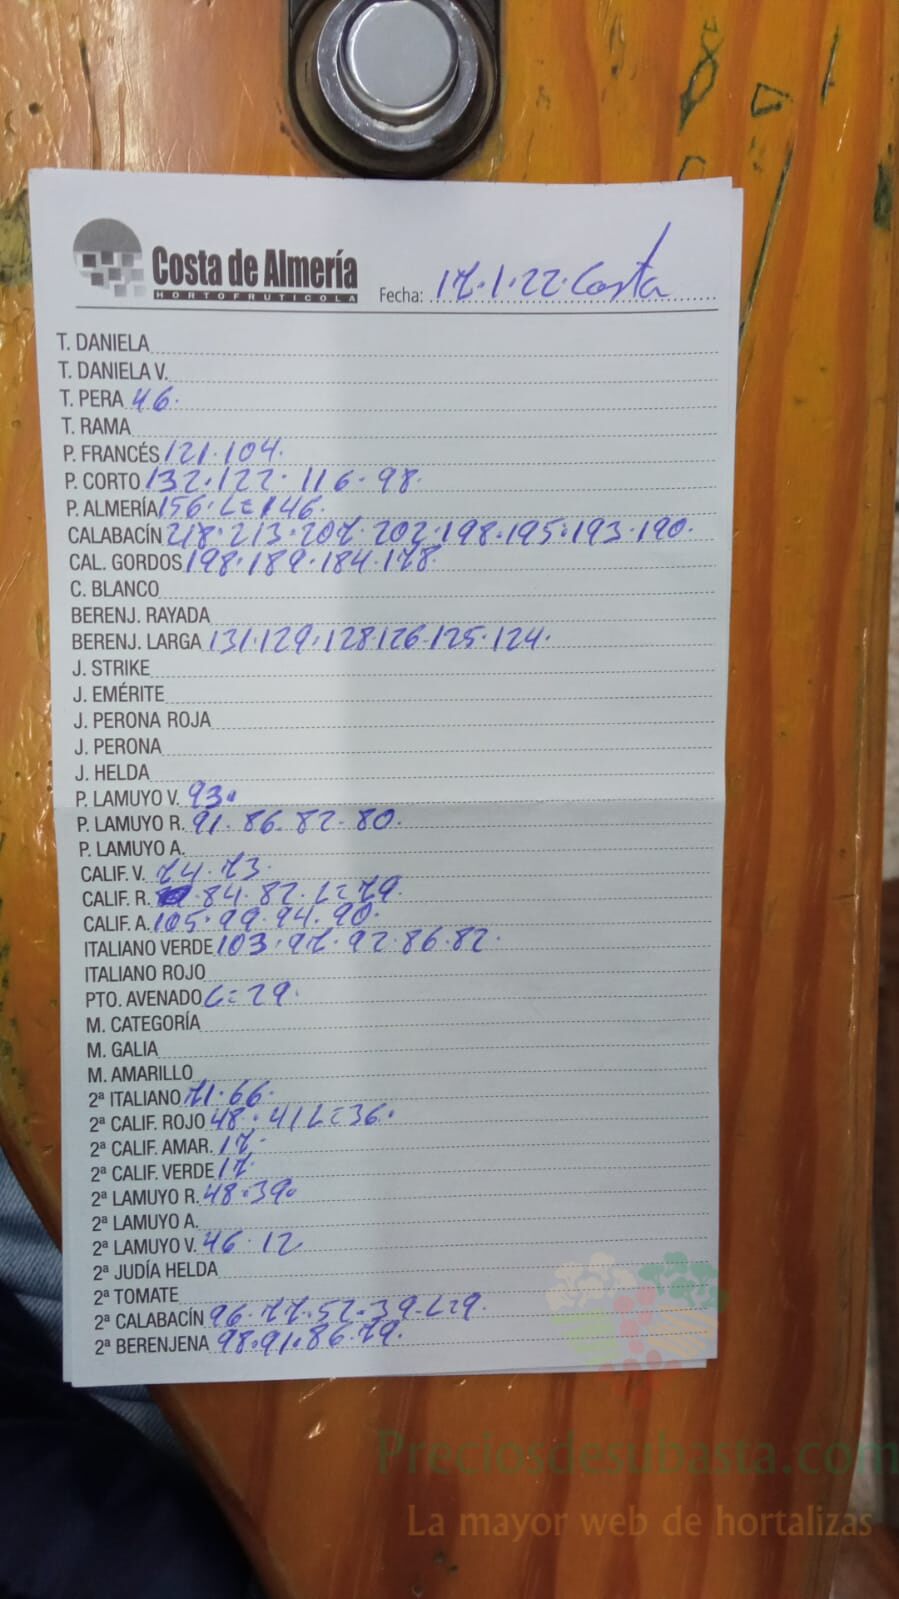 Costa de Almería
HORTOFRUTICOLA
Fecha: 17.1.22. Costa
T. DANIELA
T. DANIELA V.
T. PERA 46.
T. RAMA
P. FRANCÉS 121.104.
P. CORTO 132.122.116.98.
P. ALMERÍA 156.L=146.
CALABACÍN 218.213.207.202.198.195.193.190.
CAL. GORDOS 198.189.184.178.
C. BLANCO
BERENJ. RAYADA
BERENJ. LARGA 131.129.128.126.125.124.
J. STRIKE
J. EMÉRITE
J. PERONA ROJA
J. PERONA
J. HELDA
P. LAMUYO V. 93.
P. LAMUYO R. 91.86.82.80.
P. LAMUYO A.
CALIF. V. 74.73.
CALIF. R. 84.82.L=79.
CALIF. A. 105.99.94.90.
ITALIANO VERDE 103.97.92.86.82.
ITALIANO ROJO
PTO. AVENADO L=29.
M. CATEGORÍA
M. GALIA
M. AMARILLO
2ª ITALIANO 71.66.
2ª CALIF. ROJO 48.41 L=36.
2ª CALIF. AMAR. 17.
2ª CALIF. VERDE 17.
2ª LAMUYO R. 48.39.
2ª LAMUYO A.
2ª LAMUYO V. 46.12
2ª JUDÍA HELDA
2ª TOMATE
2ª CALABACÍN 96.77.52.39.L=9.
2ª BERENJENA 98.91.86.79.
Preciosdesubasta.com
La mayor web de hortalizas